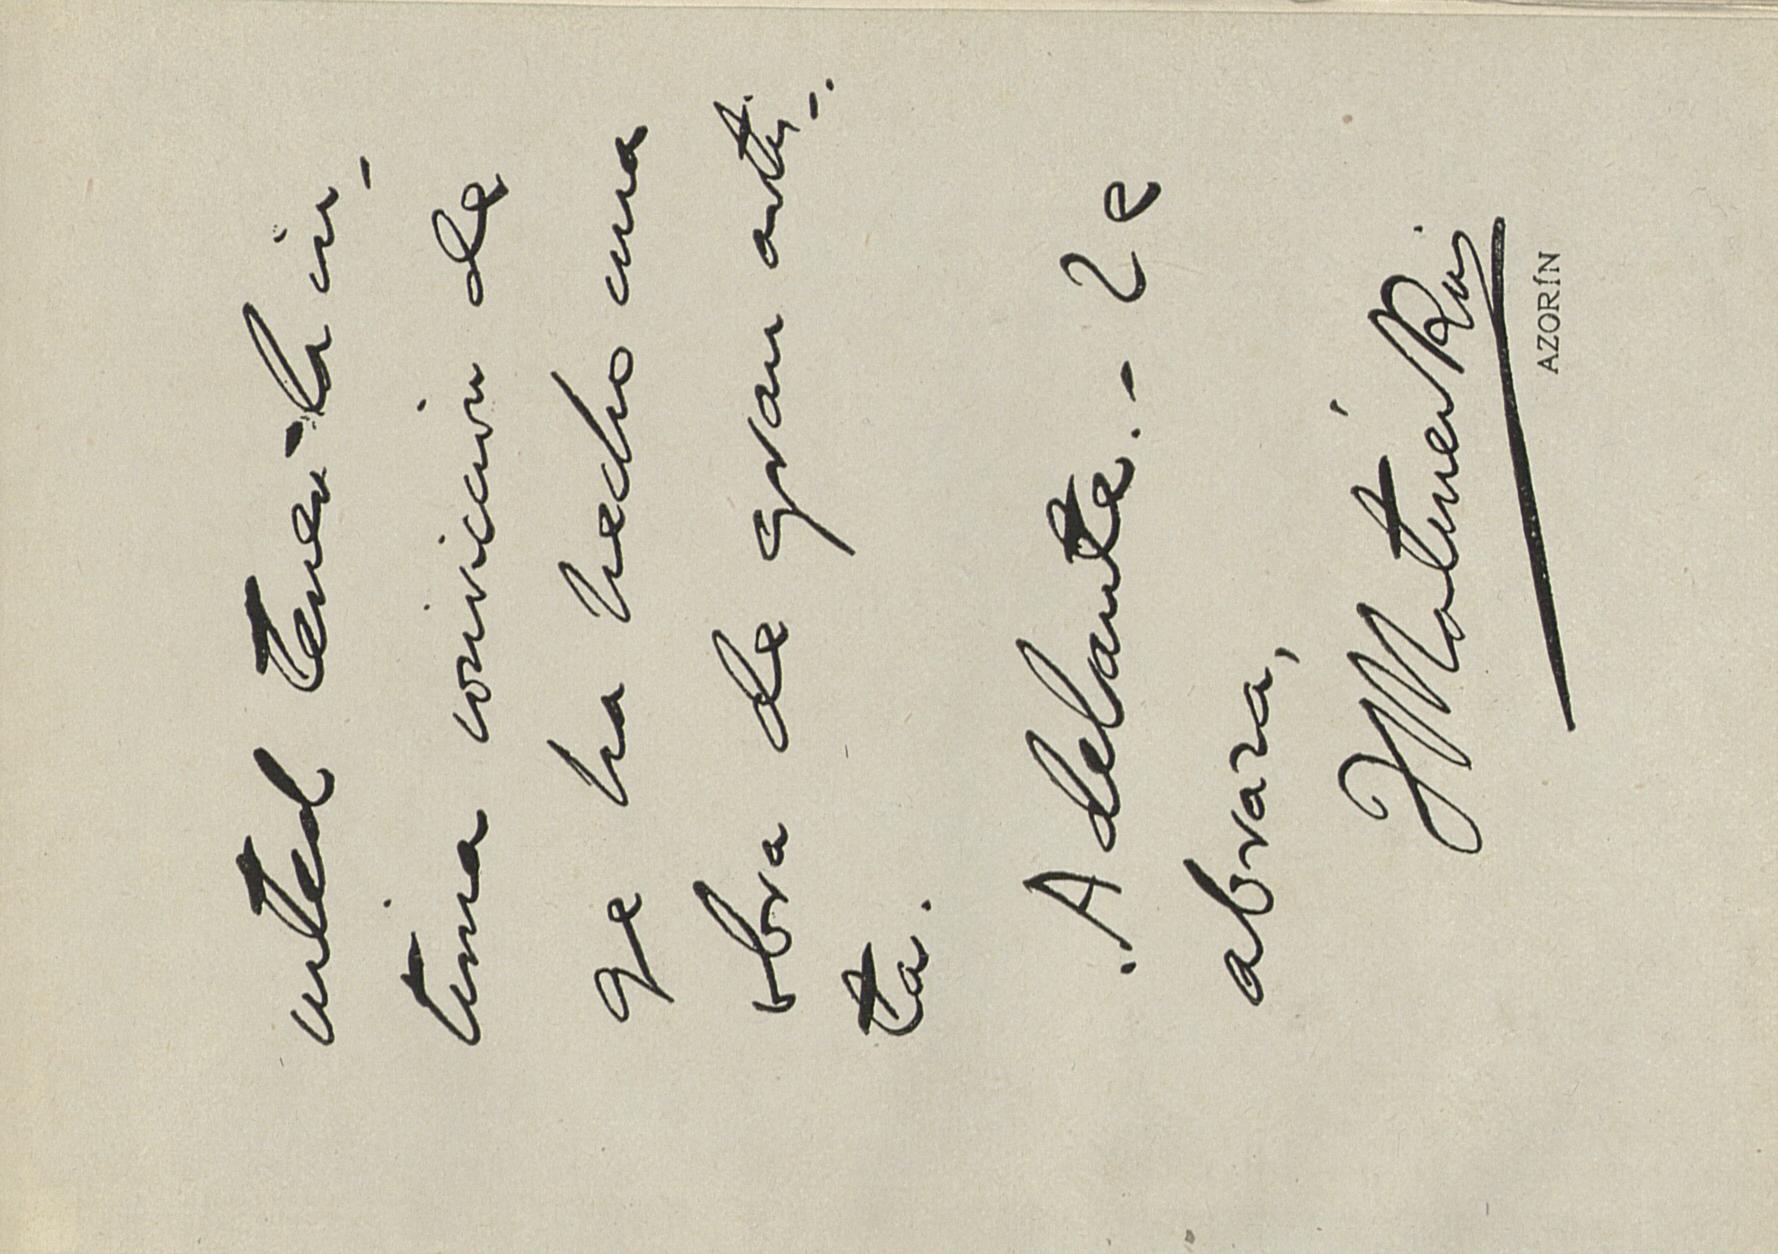 usted tener la ín-
tima convicción de
qe ha hecho una
obra de gran artis-
ta.
¡Adelante.- Le
abraza,
J Martínez Ruiz
AZORÍN